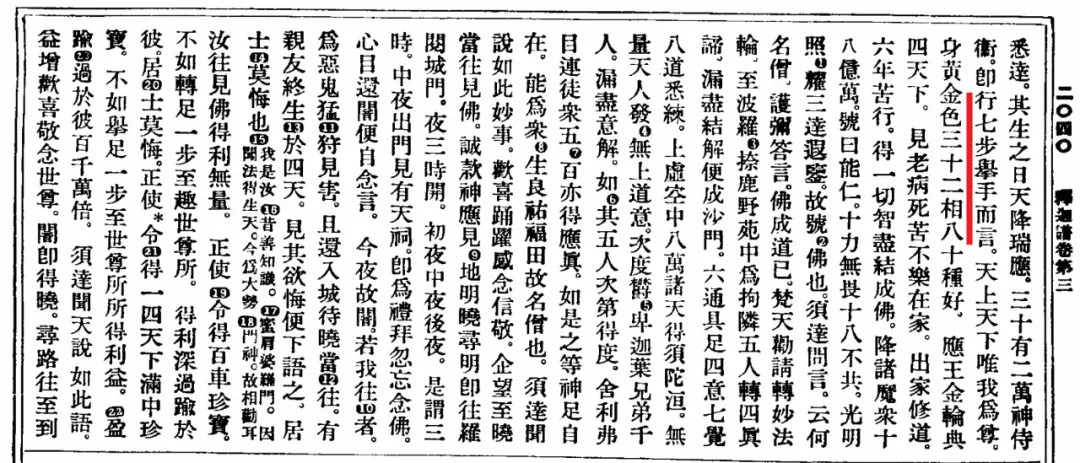 二〇四〇　釋迦譜卷第三
悉達。其生之日天降瑞應。三十有二萬神侍
衞。即行七步舉手而言。天上天下唯我爲尊。
身黃金色三十二相八十種好。應王金輪典
四天下。見老病死苦不樂在家。出家修道。
六年苦行。得一切智盡結成佛。降諸魔衆十
八億萬。號曰能仁。十力無畏十八不共。光明
照❶耀三達遐鑒。故號❷佛也。須達問言。云何
名僧。護彌答言。佛成道已。梵天勸請轉妙法
輪。至波羅❸捺鹿野苑中爲拘隣五人轉四眞
諦。漏盡結解便成沙門。六通具足四意七覺
八道悉練。上虛空中八萬諸天得須陀洹。無
量天人發❹無上道意。次度欝❺卑迦葉兄弟千
人。漏盡意解。如❻其五人次第得度。舍利弗
目連徒衆五❼百亦得應眞。如是之等神足自
在。能爲衆❽生良祐福田故名僧也。須達聞
說如此妙事。歡喜踊躍感念信敬。企望至曉
當往見佛。誠款神應見❾地明曉尋明即往羅
閱城門。夜三時開。初夜中夜後夜。是謂三
時。中夜出門見有天祠。即爲禮拜忽忘念佛。
心目還闇便自念言。今夜故闇。若我往❿者。
爲惡鬼猛⓫狩見害。且還入城待曉當⓬往。有
親友終生⓭於四天。見其欲悔便下語之。居
士⓮莫悔也⓯我是汝⓰昔善知識。⓱蜜肩婆羅門。因聞法得生天。今爲大勢⓲門神。故相勸耳
汝往見佛得利無量。正使⓳令得百車珍寶。
不如轉足一步至趣世尊所。得利深過踰於
彼。居⓴士莫悔。正使*令㉑得一四天下滿中珍
寶。不如舉足一步至世尊所所得利益。㉒盈
踰㉓過於彼百千萬倍。須達聞天說如此語。
益增歡喜敬念世尊。闇即得曉。尋路往至到